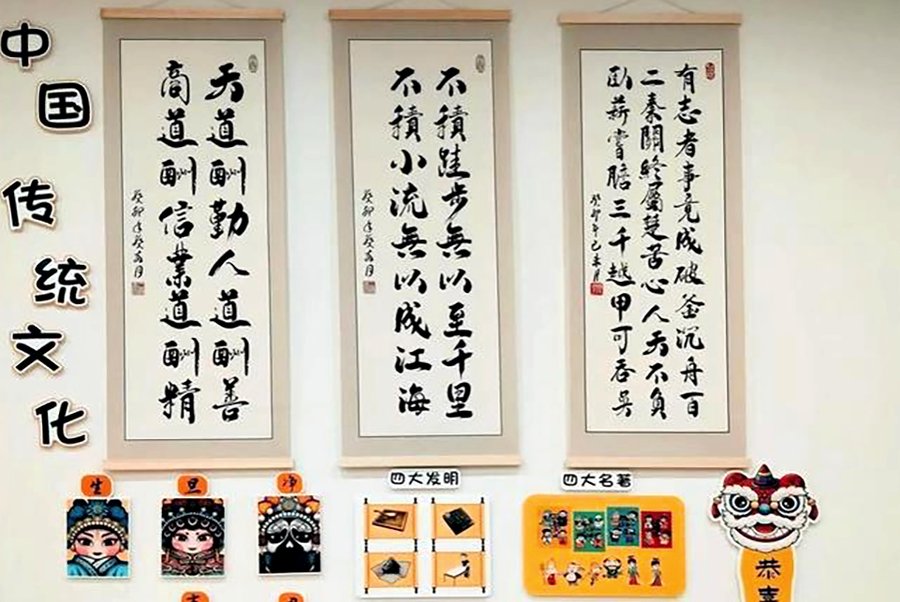 中国传统文化
天道酬勤人道酬善
商道酬信業道酬精
不積跬步無以至千里
不積小流無以成江海
有志者事竟成破釜沉舟百
二秦關終屬楚苦心人天不負
臥薪嘗膽三千越甲可吞吳
生
旦
净
四大发明
四大名著
恭喜